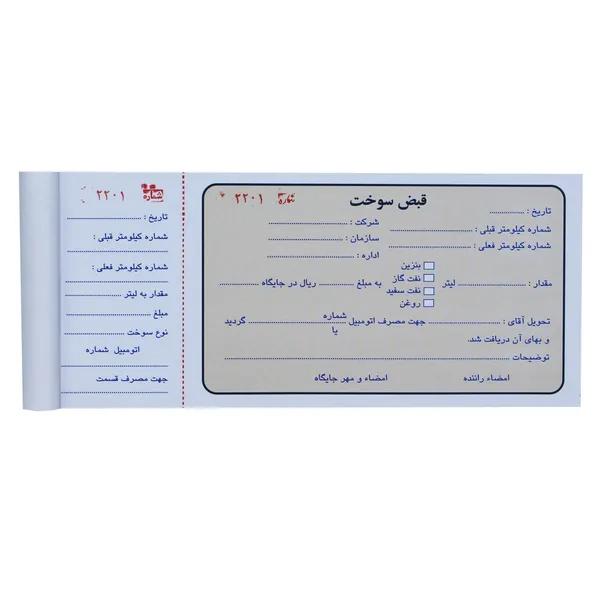 قبض سوخت
شماره ۲۲۰۱
تاریخ :
شماره کیلومتر قبلی :
شماره کیلومتر فعلی :
شرکت :
سازمان :
اداره :
مقدار : لیتر
بنزین
نفت گاز
نفت سفید
روغن
به مبلغ ریال در جایگاه
تحویل آقای : جهت مصرف اتومبیل شماره یا گردید
و بهای آن دریافت شد.
توضیحات
امضاء راننده امضاء و مهر جایگاه
شماره ۲۲۰۱
تاریخ :
شماره کیلومتر قبلی :
شماره کیلومتر فعلی :
مقدار به لیتر
مبلغ
نوع سوخت
اتومبیل شماره
جهت مصرف قسمت